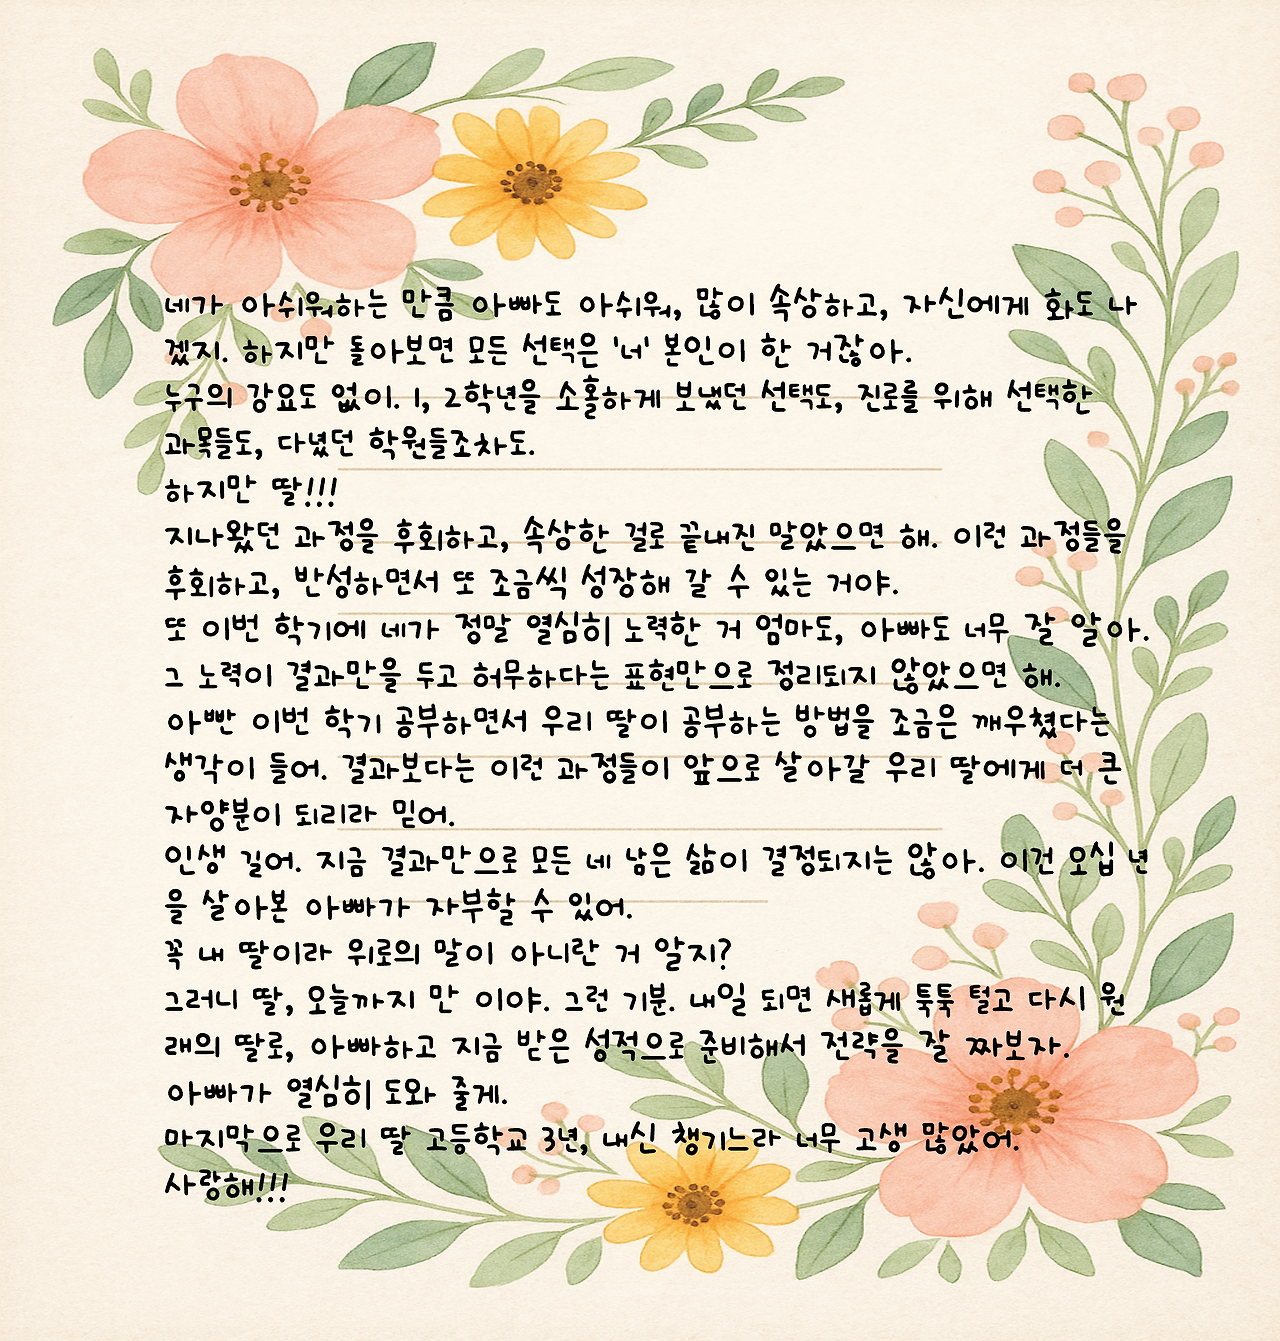 네가 아쉬워하는 만큼 아빠도 아쉬워, 많이 속상하고, 자신에게 화도 나
겠지. 하지만 돌아보면 모든 선택은 '너' 본인이 한 거잖아.
누구의 강요도 없이. 1, 2학년을 소홀하게 보냈던 선택도, 진로를 위해 선택한
과목들도, 다녔던 학원들조차도.
하지만 딸!!!
지나왔던 과정을 후회하고, 속상한 걸로 끝내진 말았으면 해. 이런 과정들을
후회하고, 반성하면서 또 조금씩 성장해 갈 수 있는 거야.
또 이번 학기에 네가 정말 열심히 노력한 거 엄마도, 아빠도 너무 잘 알아.
그 노력이 결과만을 두고 허무하다는 표현만으로 정리되지 않았으면 해.
아빤 이번 학기 공부하면서 우리 딸이 공부하는 방법을 조금은 깨우쳤다는
생각이 들어. 결과보다는 이런 과정들이 앞으로 살아갈 우리 딸에게 더 큰
자양분이 되리라 믿어.
인생 길어. 지금 결과만으로 모든 네 남은 삶이 결정되지는 않아. 이건 오십 년
을 살아본 아빠가 자부할 수 있어.
꼭 내 딸이라 위로의 말이 아니란 거 알지?
그러니 딸, 오늘까지 만 이야. 그런 기분. 내일 되면 새롭게 툭툭 털고 다시 원
래의 딸로, 아빠하고 지금 받은 성적으로 준비해서 전략을 잘 짜보자.
아빠가 열심히 도와 줄게.
마지막으로 우리 딸 고등학교 3년, 내신 챙기느라 너무 고생 많았어.
사랑해!!!